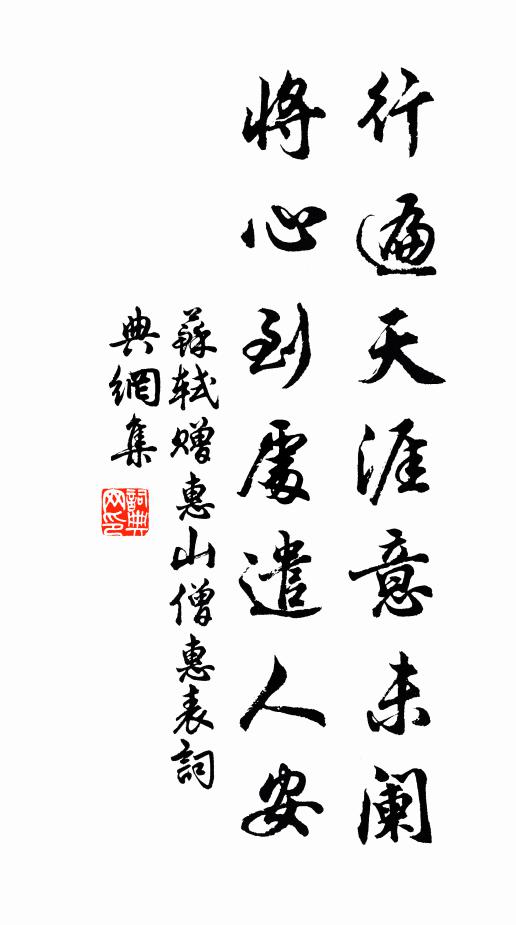 行遍天涯意未阑
將心到處遣人安
蘇軾贈惠山僧惠表詞
典網集
詞典網印